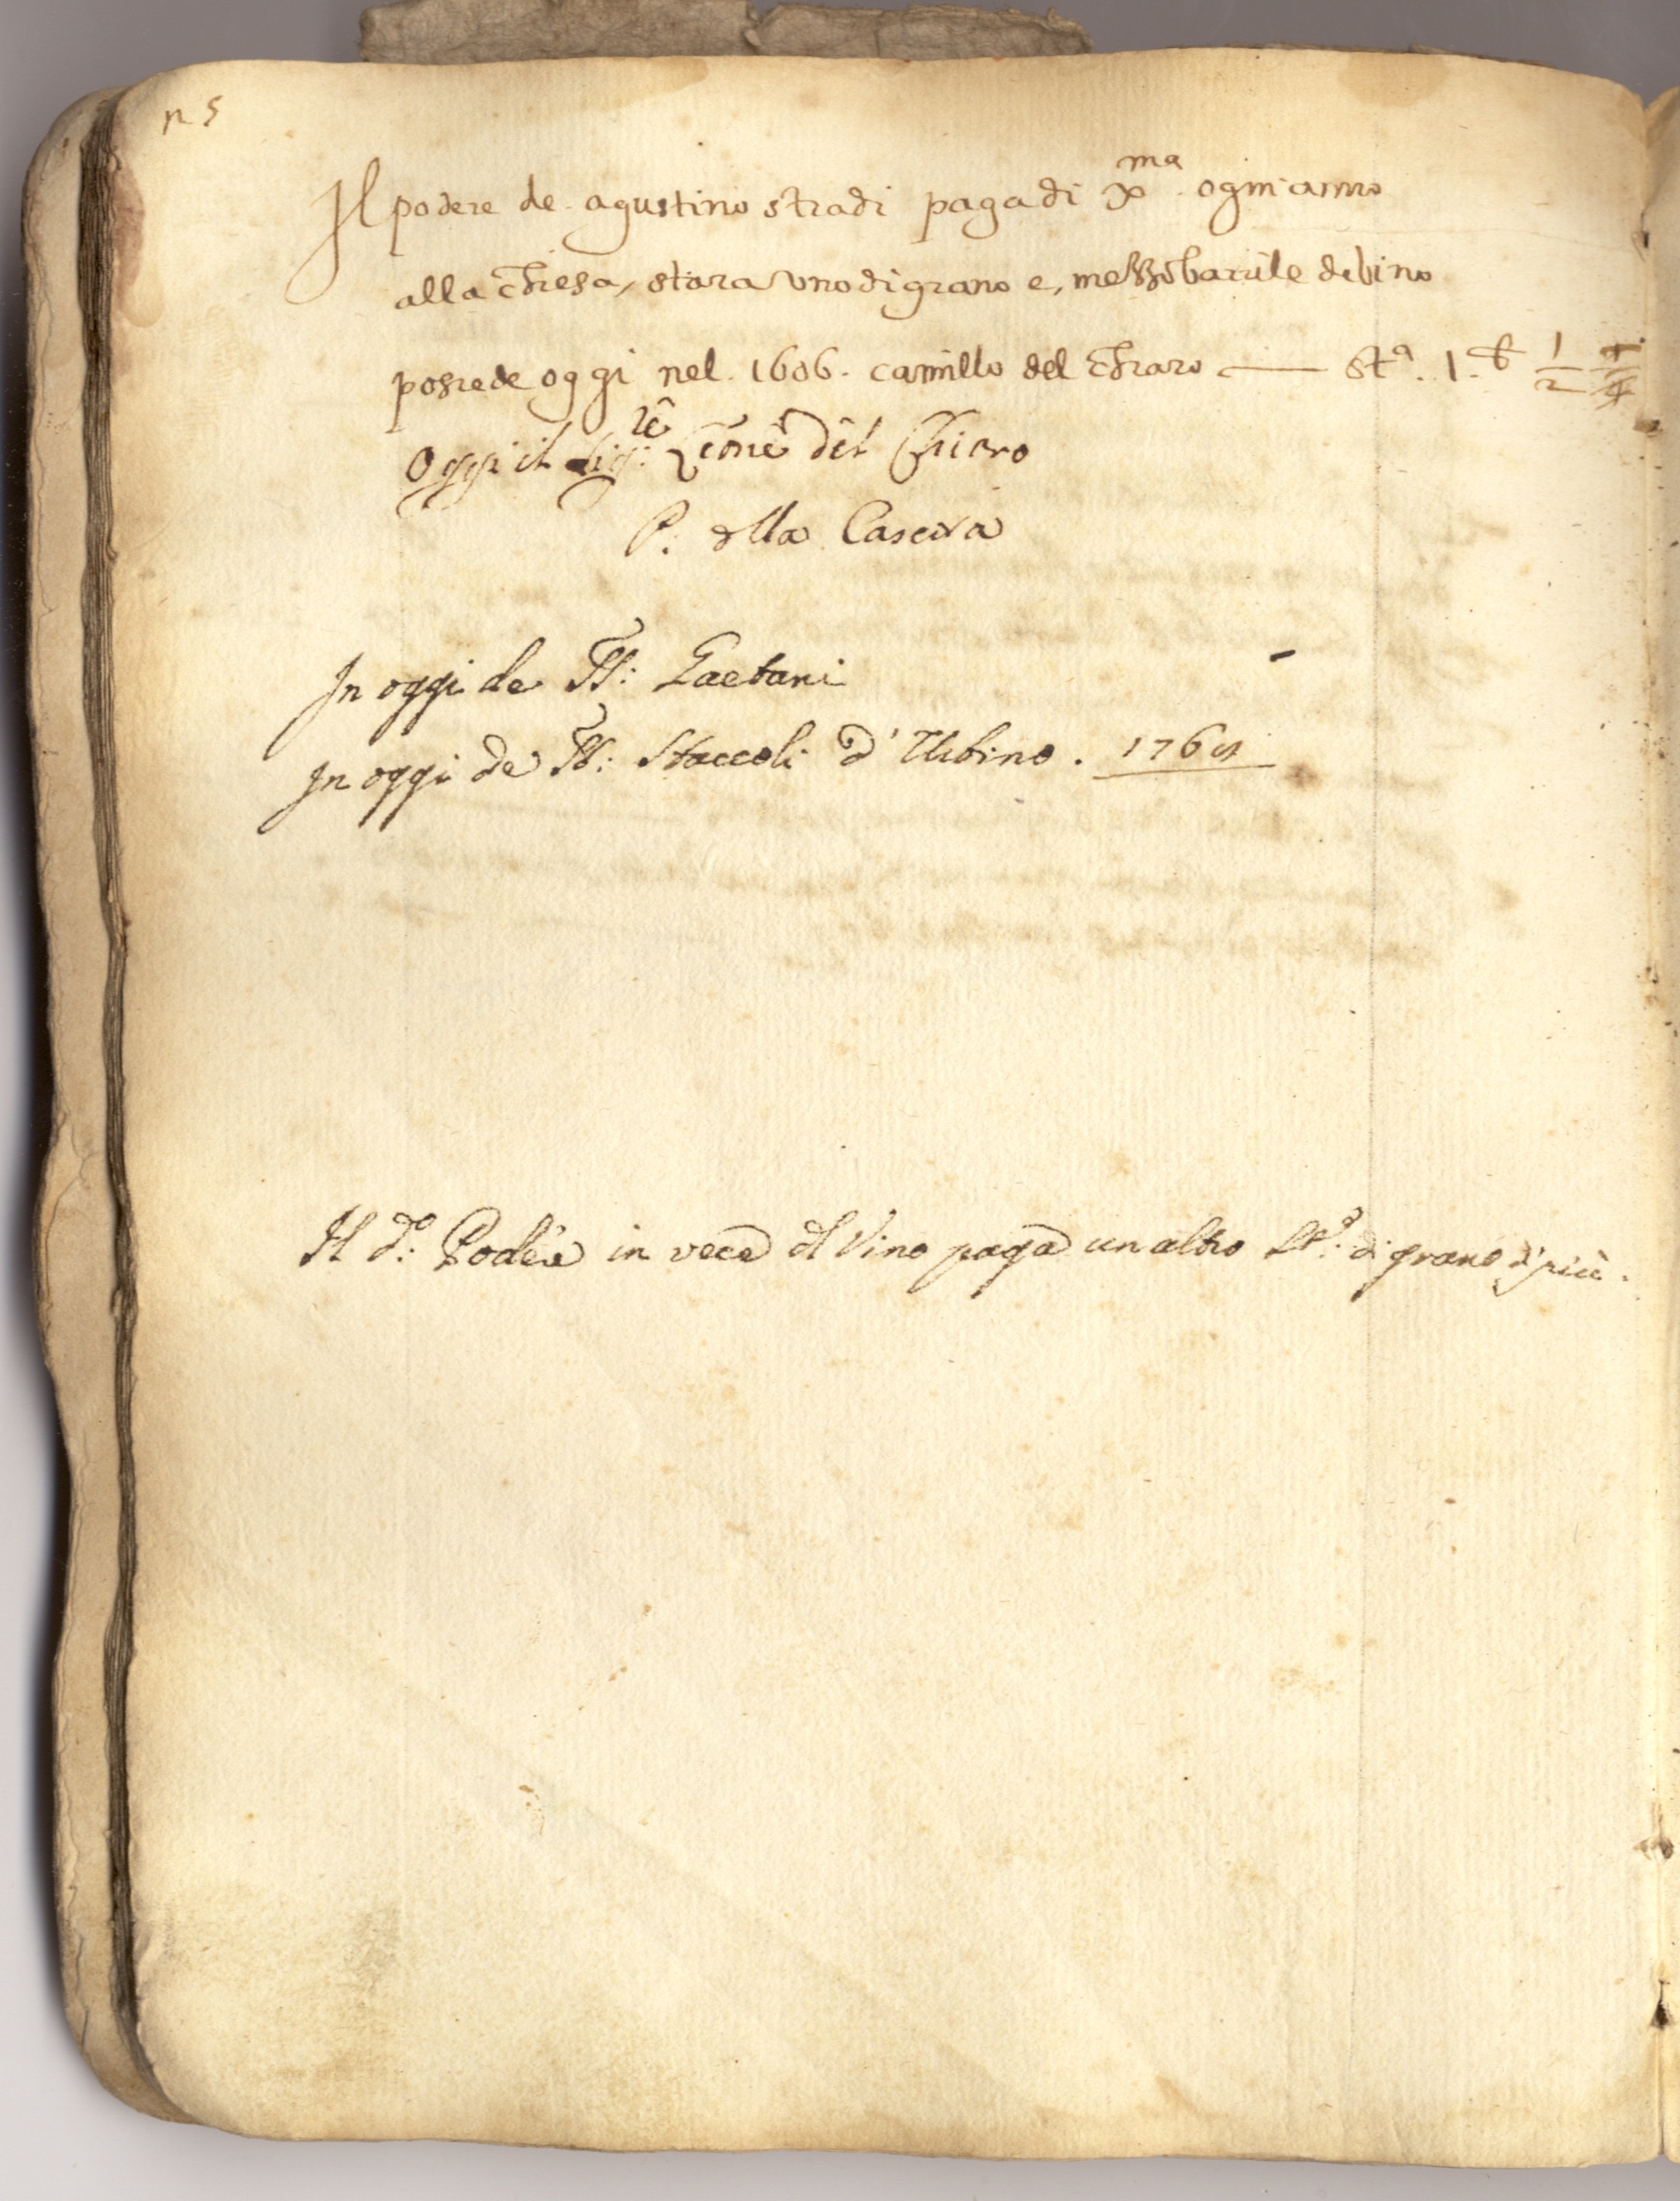 n 5
Il podere de agustino stradi paga di Xma ogni anno
alla chiesa, stara uno di grano e, mezzo barile di vino
posiede oggi nel 1606. camillo del chiaro —— sta. 1. b 1/2
Oggi il Sig:re Leone del Chiaro
P: della
In oggi de SS: Gaetani
In oggi de SS: Staccoli d'Urbino.
Il do: Podere in vece del Vino paga un altro sto: di grano di più.